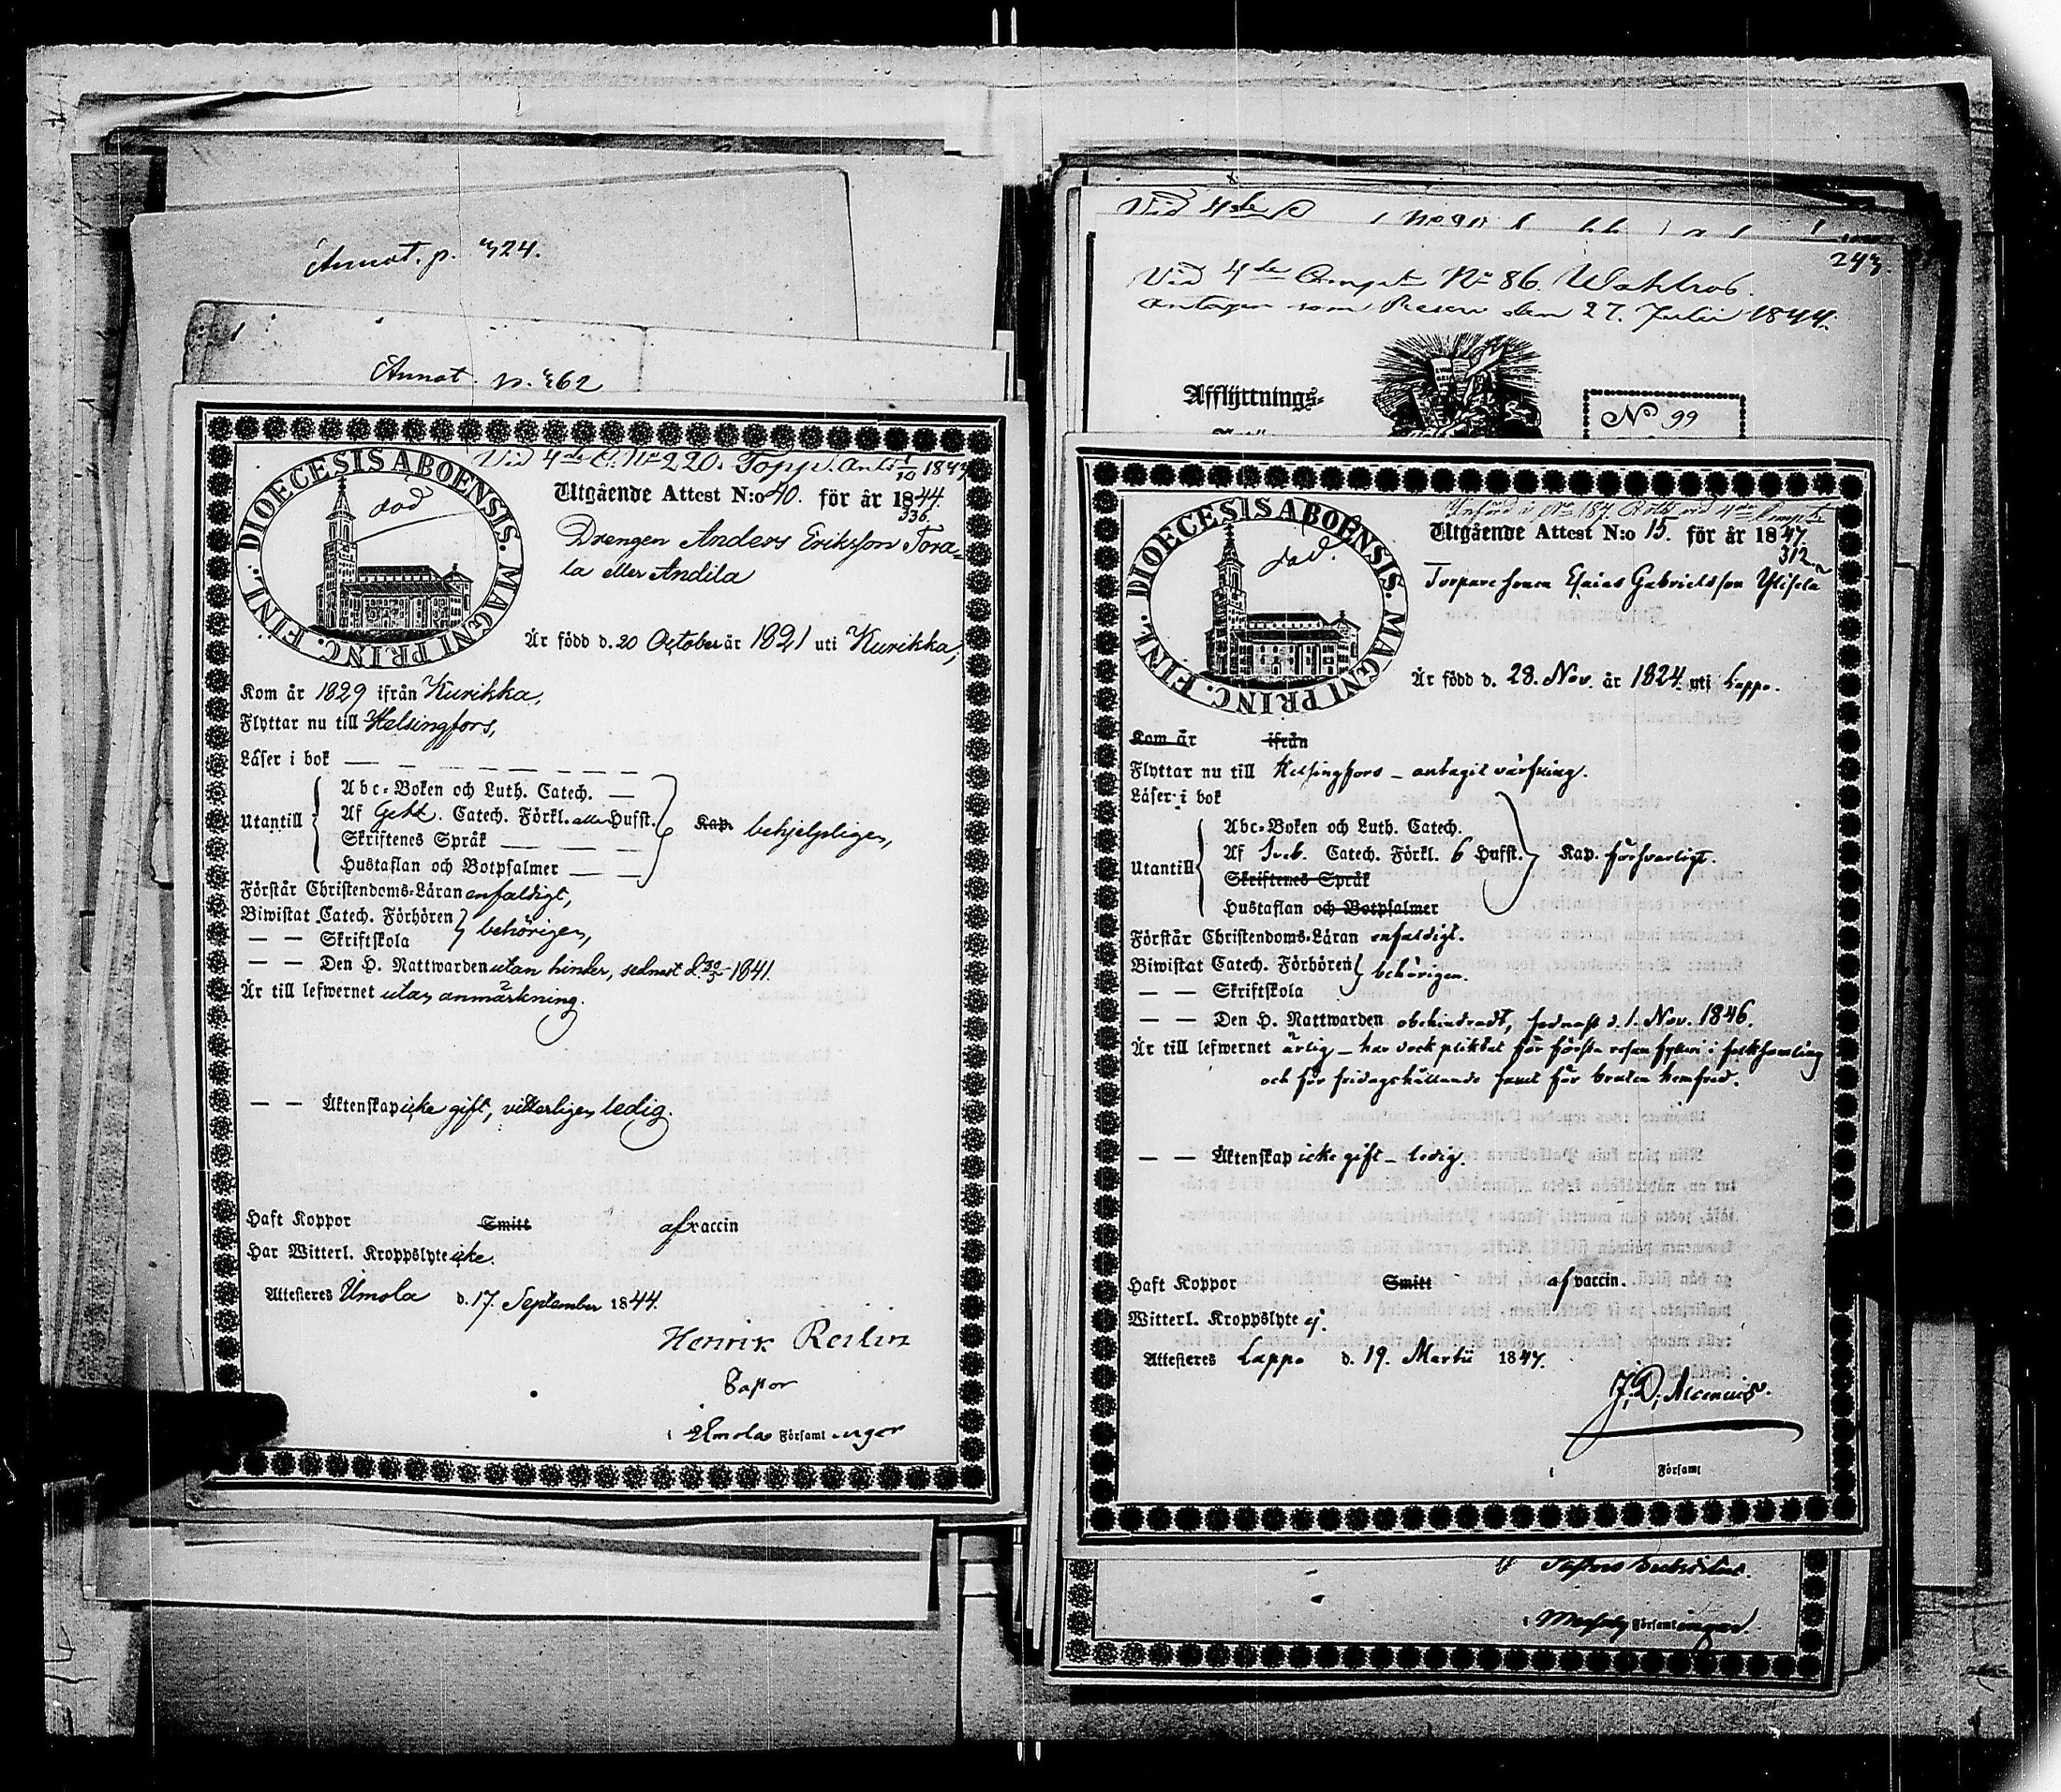 Annot. p. 324.
Annot. p. 362
Vid 4de C. No 220. Topp. Ant. 1/10 1844
DIOECESIS ABOENSIS. MAGNI PRINC. FINL.
död
Utgående Attest N:o 40. för år 1844.
336.
Drengen Anders Eriksson Tora-
la eller Andila
Är född d. 20 October år 1821 uti Kurikka,
Kom år 1829 ifrån Kurikka,
Flyttar nu till Helsingfors,
Läser i bok — — — — — — —
Utantill
Abc-Boken och Luth. Catech. —
Af Catech. Förkl. alla Hufst.
Skriftenes Språk — — — —
Hustaflan och Botpsalmer — —
Kap. behjelpligen,
Förstår Christendoms-Läran enfaldigt,
Biwistat Catech. Förhören
— — Skriftskola
behörigen,
— — Den H. Nattwarden utan hinder, sednast d. 30/5 1841.
Är till lefwernet utan anmärkning.
— — Äktenskap icke gift, vitterligen ledig.
Haft Koppor Smitt af vaccin
Har Witterl. Kroppslyte icke.
Attesteras Ilmola d. 17. September 1844.
Henrik Reilin
Pastor
i Ilmola Församl ingar
Vid 4de No 90
243.
Vid 4de Compt. No 86. Wahlros
antagen som Reserv den 27. Julii 1844.
Afflyttnings-
No 99
Införd i No 187. Rotts vid 4de Compt.
DIOECESIS ABOENSIS. MAGNI PRINC. FINL.
död.
Utgående Attest N:o 15. för år 1847.
312
Torpare sonen Esaias Gabrielsson Ylisela
Är född d. 28. Nov. år 1824. uti Lappo.
Kom år ifrån
Flyttar nu till Helsingfors – antagit värfning.
Läser i bok
Utantill
Abc-Boken och Luth. Catech.
Af Sveb. Catech. Förkl. 6 Hufst.
Skriftenes Språk
Hustaflan och Botpsalmer
Kap. försvarligt.
Förstår Christendoms-Läran enfaldigt.
Biwistat Catech. Förhören
— — Skriftskola
behörigen.
— — Den H. Nattwarden obehindradt, sednast d. 1. Nov. 1846.
Är till lefwernet ärlig – har dock pliktat för första resan fylleri i folksamling
och för fridagshållande samt för bruten hemfred.
— — Äktenskap icke gift – ledig.
Haft Koppor Smitt af vaccin.
Witterl. Kroppslyte ej.
Attesteras Lappo d. 19. Martii 1847.
J. D. Alcenius.
i Församl
Pastors
i Församl ingar.